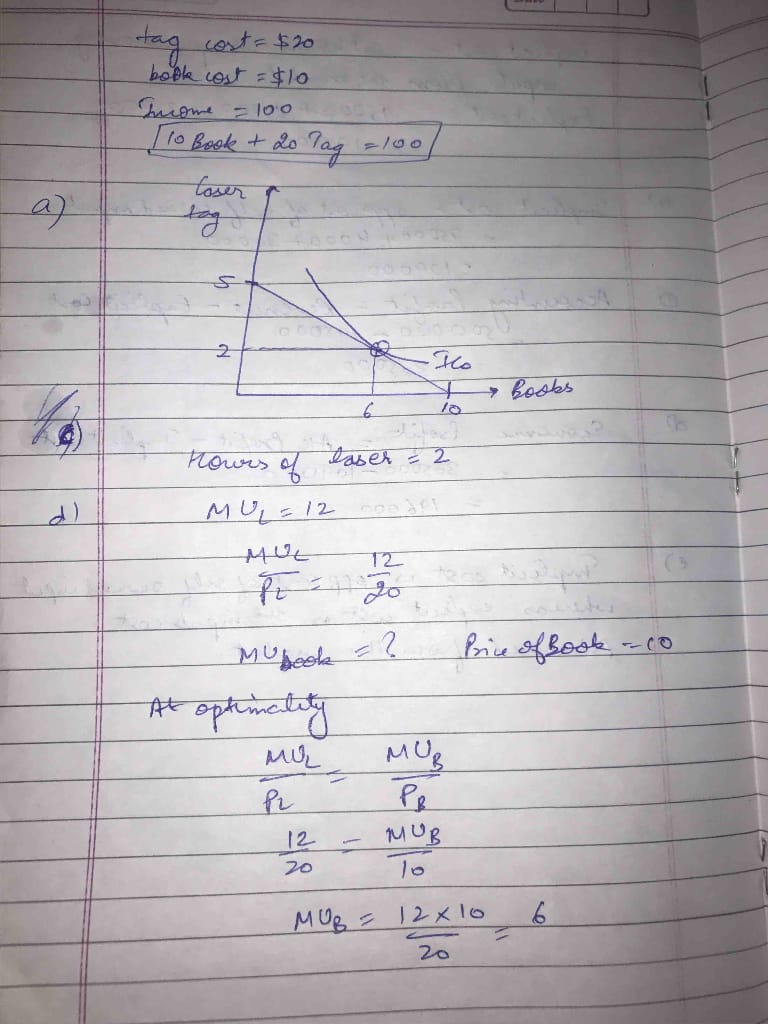 tag cost = $20
book cost = $10
Income = 100
10 Book + 20 Tag = 100
a)
laser
tag
5
2
IC₀
Books
6 10
c)
Hours of laser = 2
d) MU_L = 12
MU_L / P_L = 12 / 20
MU_book = ? Price of Book = 10
At optimality
MU_L / P_L = MU_B / P_B
12 / 20 = MU_B / 10
MU_B = 12 × 10 / 20 = 6